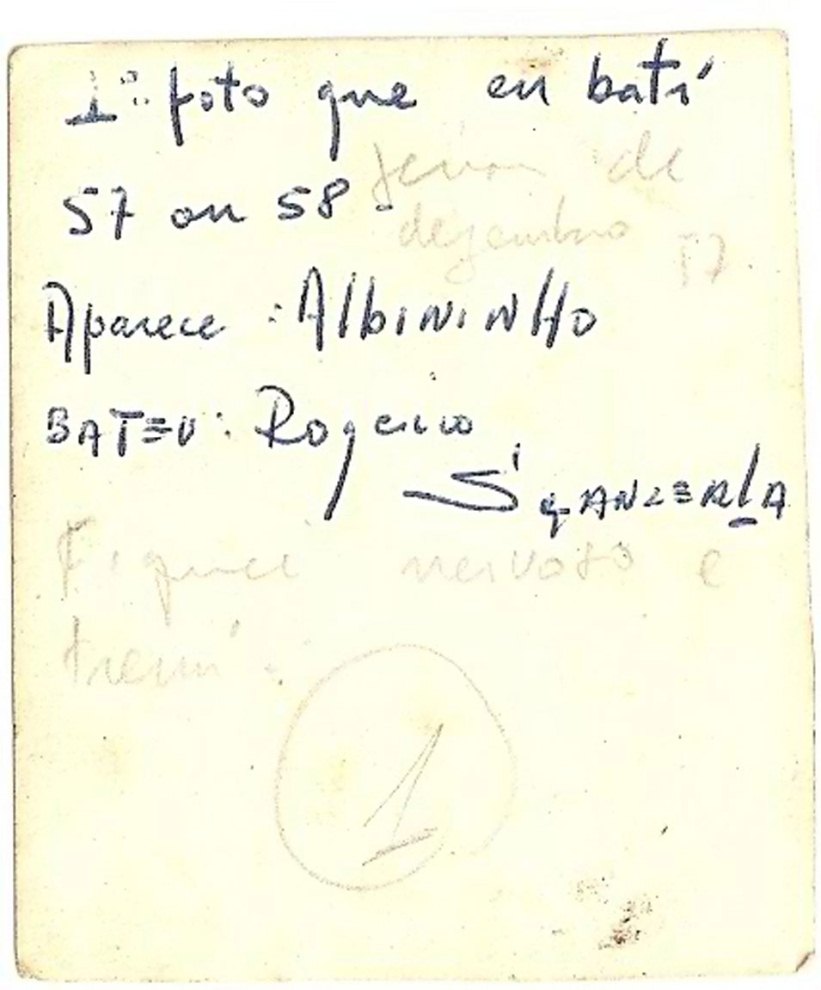 1º foto que eu bati
de
57 ou 58
dezembro
57.
Aparece : AlbiNiNHo
BATEU : Rogerio
SgANZERlA
Fiquei nervoso e
tremi.
1